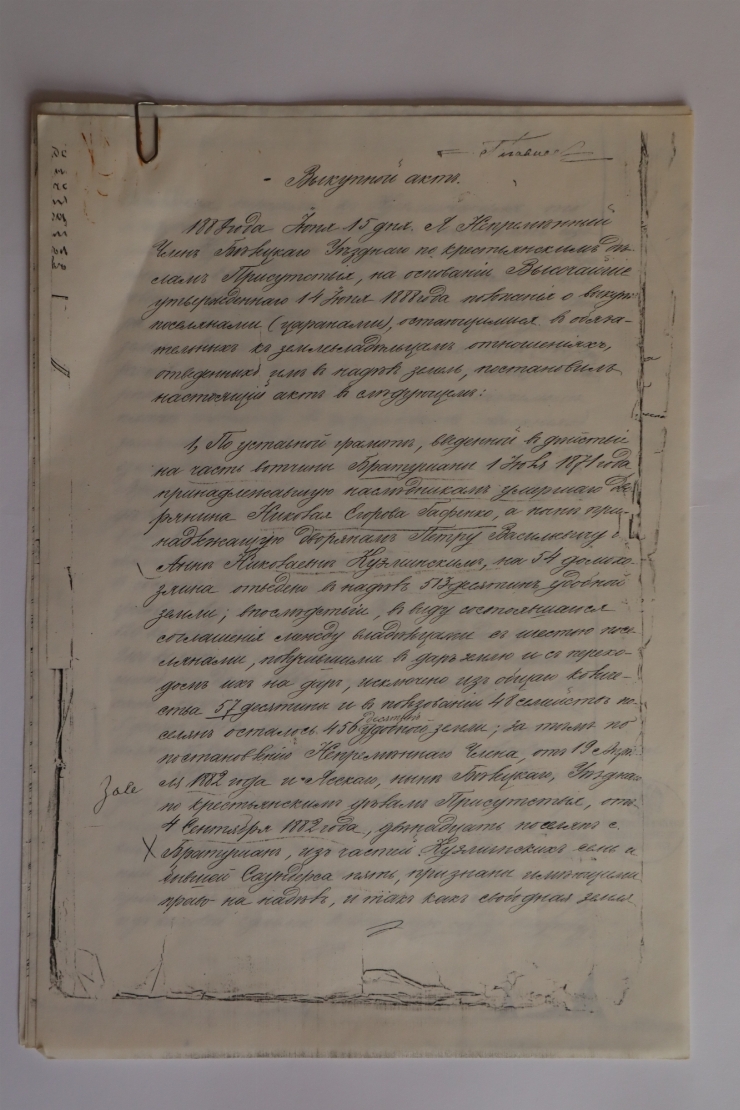 Выкупной актъ.
1888 года Іюня 15 дня. Я Непремѣнный
Членъ Бѣлецкаго Уѣзднаго по крестьянскимъ дѣ-
ламъ Присутствія, на основаніи Высочайше
утвержденнаго 14 Іюня 1888 года положенія о выкупѣ
поселянами (царанами), остающимися въ обяза-
тельныхъ къ землевладѣльцамъ отношеніяхъ,
отведенныхъ имъ въ надѣлъ земель, постановилъ
настоящій актъ въ слѣдующемъ:
1, По уставной грамотѣ, введенной въ дѣйствіе
на часть вотчины Братушаны 1 Іюля 1871 года,
принадлежавшую наслѣдникамъ умершаго Дво-
рянина Николая Егорова Гафенко, а нынѣ при-
надлежащую дворянамъ Петру Васильевичу и
Аннѣ Николаевнѣ Кузминскимъ, на 54 домохо-
зяина отведено въ надѣлъ 513 десятинъ удобной
земли; впослѣдствіи, въ виду состоявшагося
соглашенія между владѣльцами съ шестью посе-
лянами, получившими въ даръ землю и съ перехо-
домъ ихъ на даръ, исключено изъ общаго количе-
ства 57 десятинъ и въ пользованіи 48 семействъ по-
селянъ осталось 456 десятинъ удобной земли; за тѣмъ по
постановленію Непремѣннаго Члена, отъ 19 Апрѣ-
ля 1882 года и Ясскаго, нынѣ Бѣлецкаго, Уѣзднаго
по крестьянскимъ дѣламъ Присутствія, отъ
Zale
4 Сентября 1882 года, двѣнадцать поселянъ с.
Братушанъ, изъ частей Кузминскихъ семь и
бывшей пять, признаны имѣющими
право на надѣлъ, и такъ какъ свободная земля